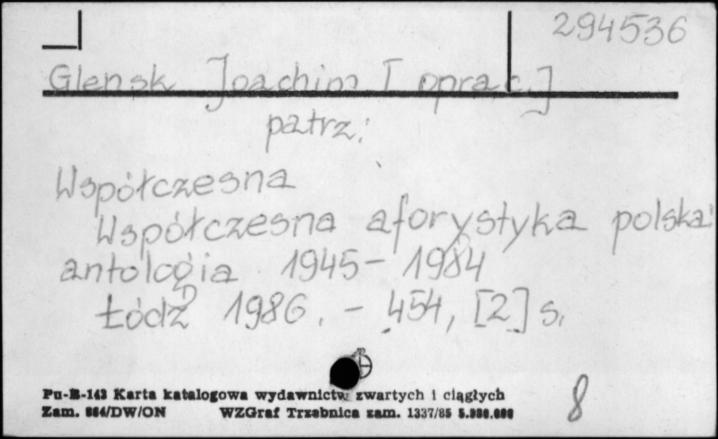 294536
Glensk Joachim [oprac.]
patrz:
Współczesna
Współczesna aforystyka polska:
antologia 1945-1984
Łódź 1986. - 454, [2] s.
Pu-B-143 Karta katalogowa wydawnictw zwartych i ciągłych
Zam. 864/DW/ON WZGraf Trzebnica zam. 1337/85
8